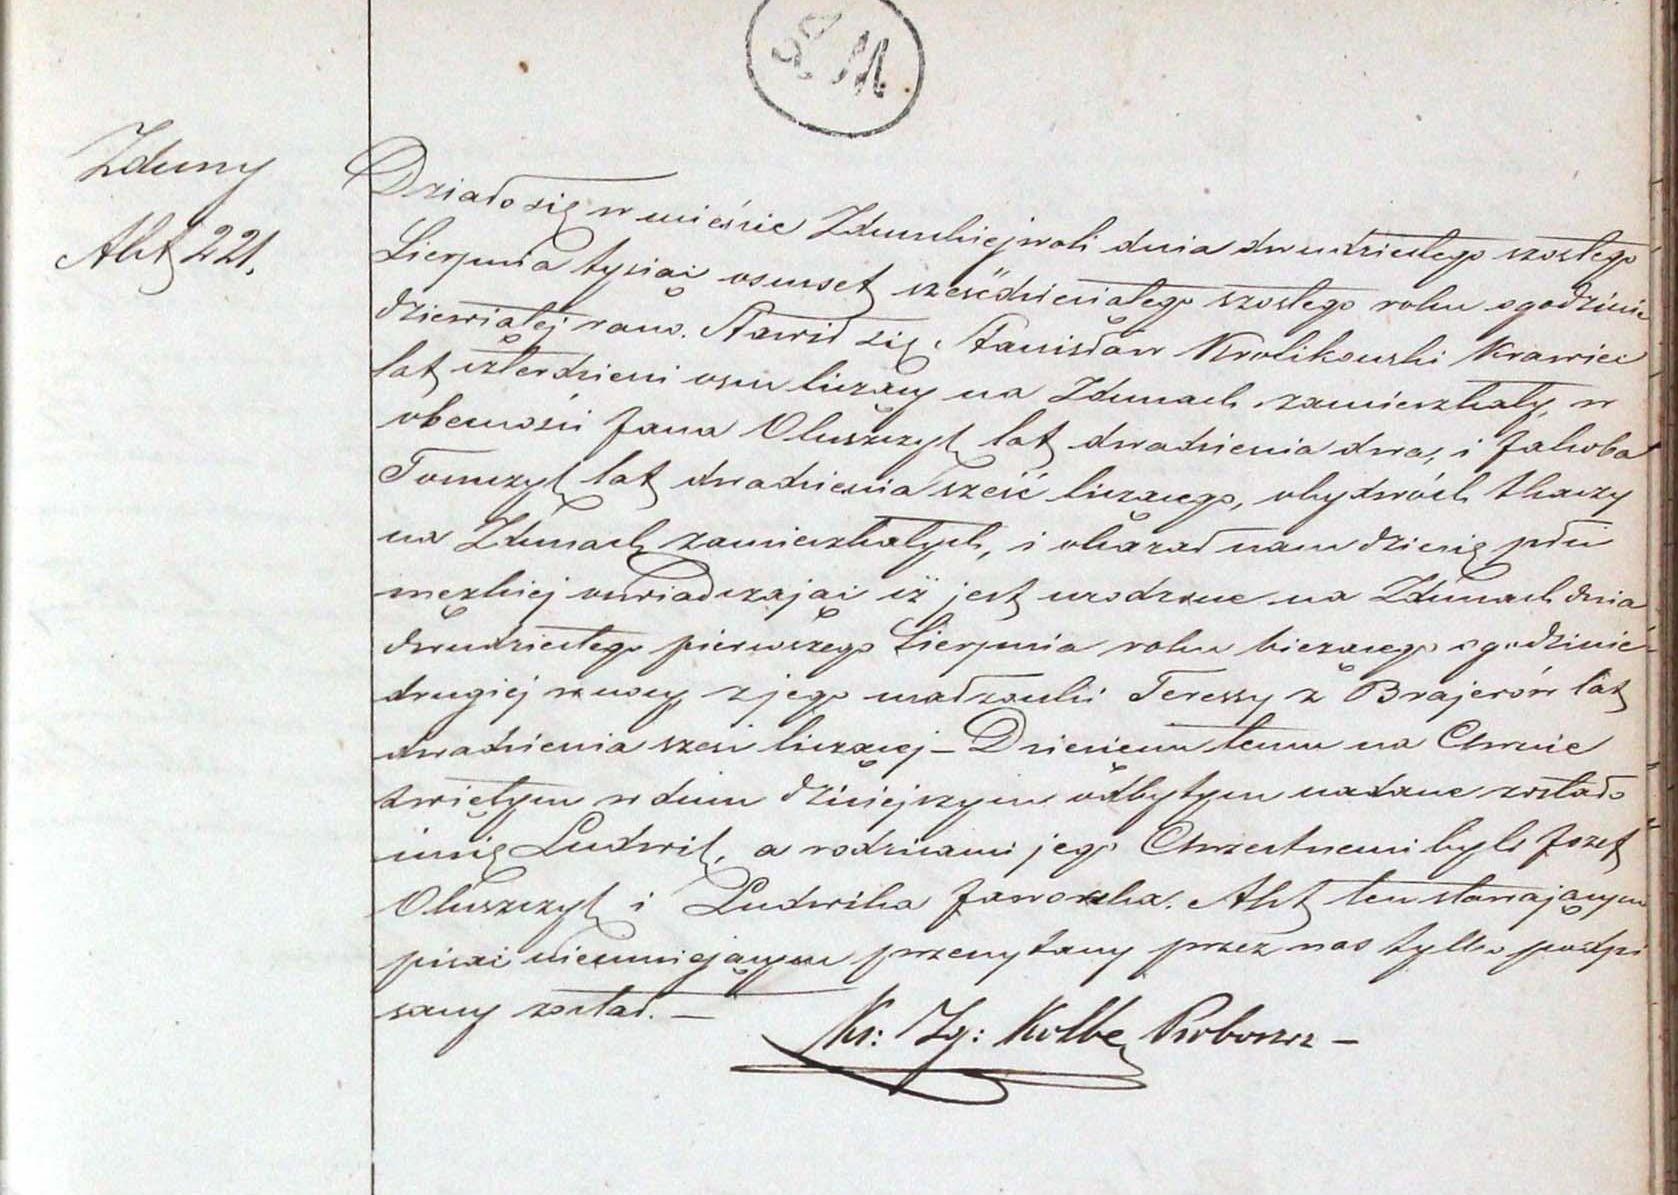 Zduny
Akt 221.
Działo się w mieście Zduńskiejwoli dnia dwudziestego szostego
Sierpnia tysiąc osmset sześćdziesiątego szostego roku o godzinie
dziewiątej rano. Stawił się Stanisław Krolikowski Krawiec
lat czterdzieści osm liczący na Zdunach zamieszkały, w
obecności Jana Oluszczyk lat dwadzieścia dwa, i Jakoba
Tomczyk lat dwadzieścia sześć liczącego, obydwóch tkaczy
na Zdunach zamieszkałych, i okazał nam dziecię płci
męzkiej oświadczając iż jest urodzone na Zdunach dnia
dwudziestego pierwszego Sierpnia roku bieżącego o godzinie
drugiej w nocy z jego małżonki Teressy z Brajerów lat
dwadzieścia sześć liczącej – Dziecięciu temu na Chrzcie
świętym w dniu dzisiejszym odbytym nadane zostało
imię Ludwik, a rodzicami jego Chrzestnemi byli Jozef
Oluszczyk i Ludwika Jaworska. Akt ten stawającym
pisać nieumiejącym przeczytany przez nas tylko podpi
sany został. –
Ks: Ig: Kolbe Proboszcz –